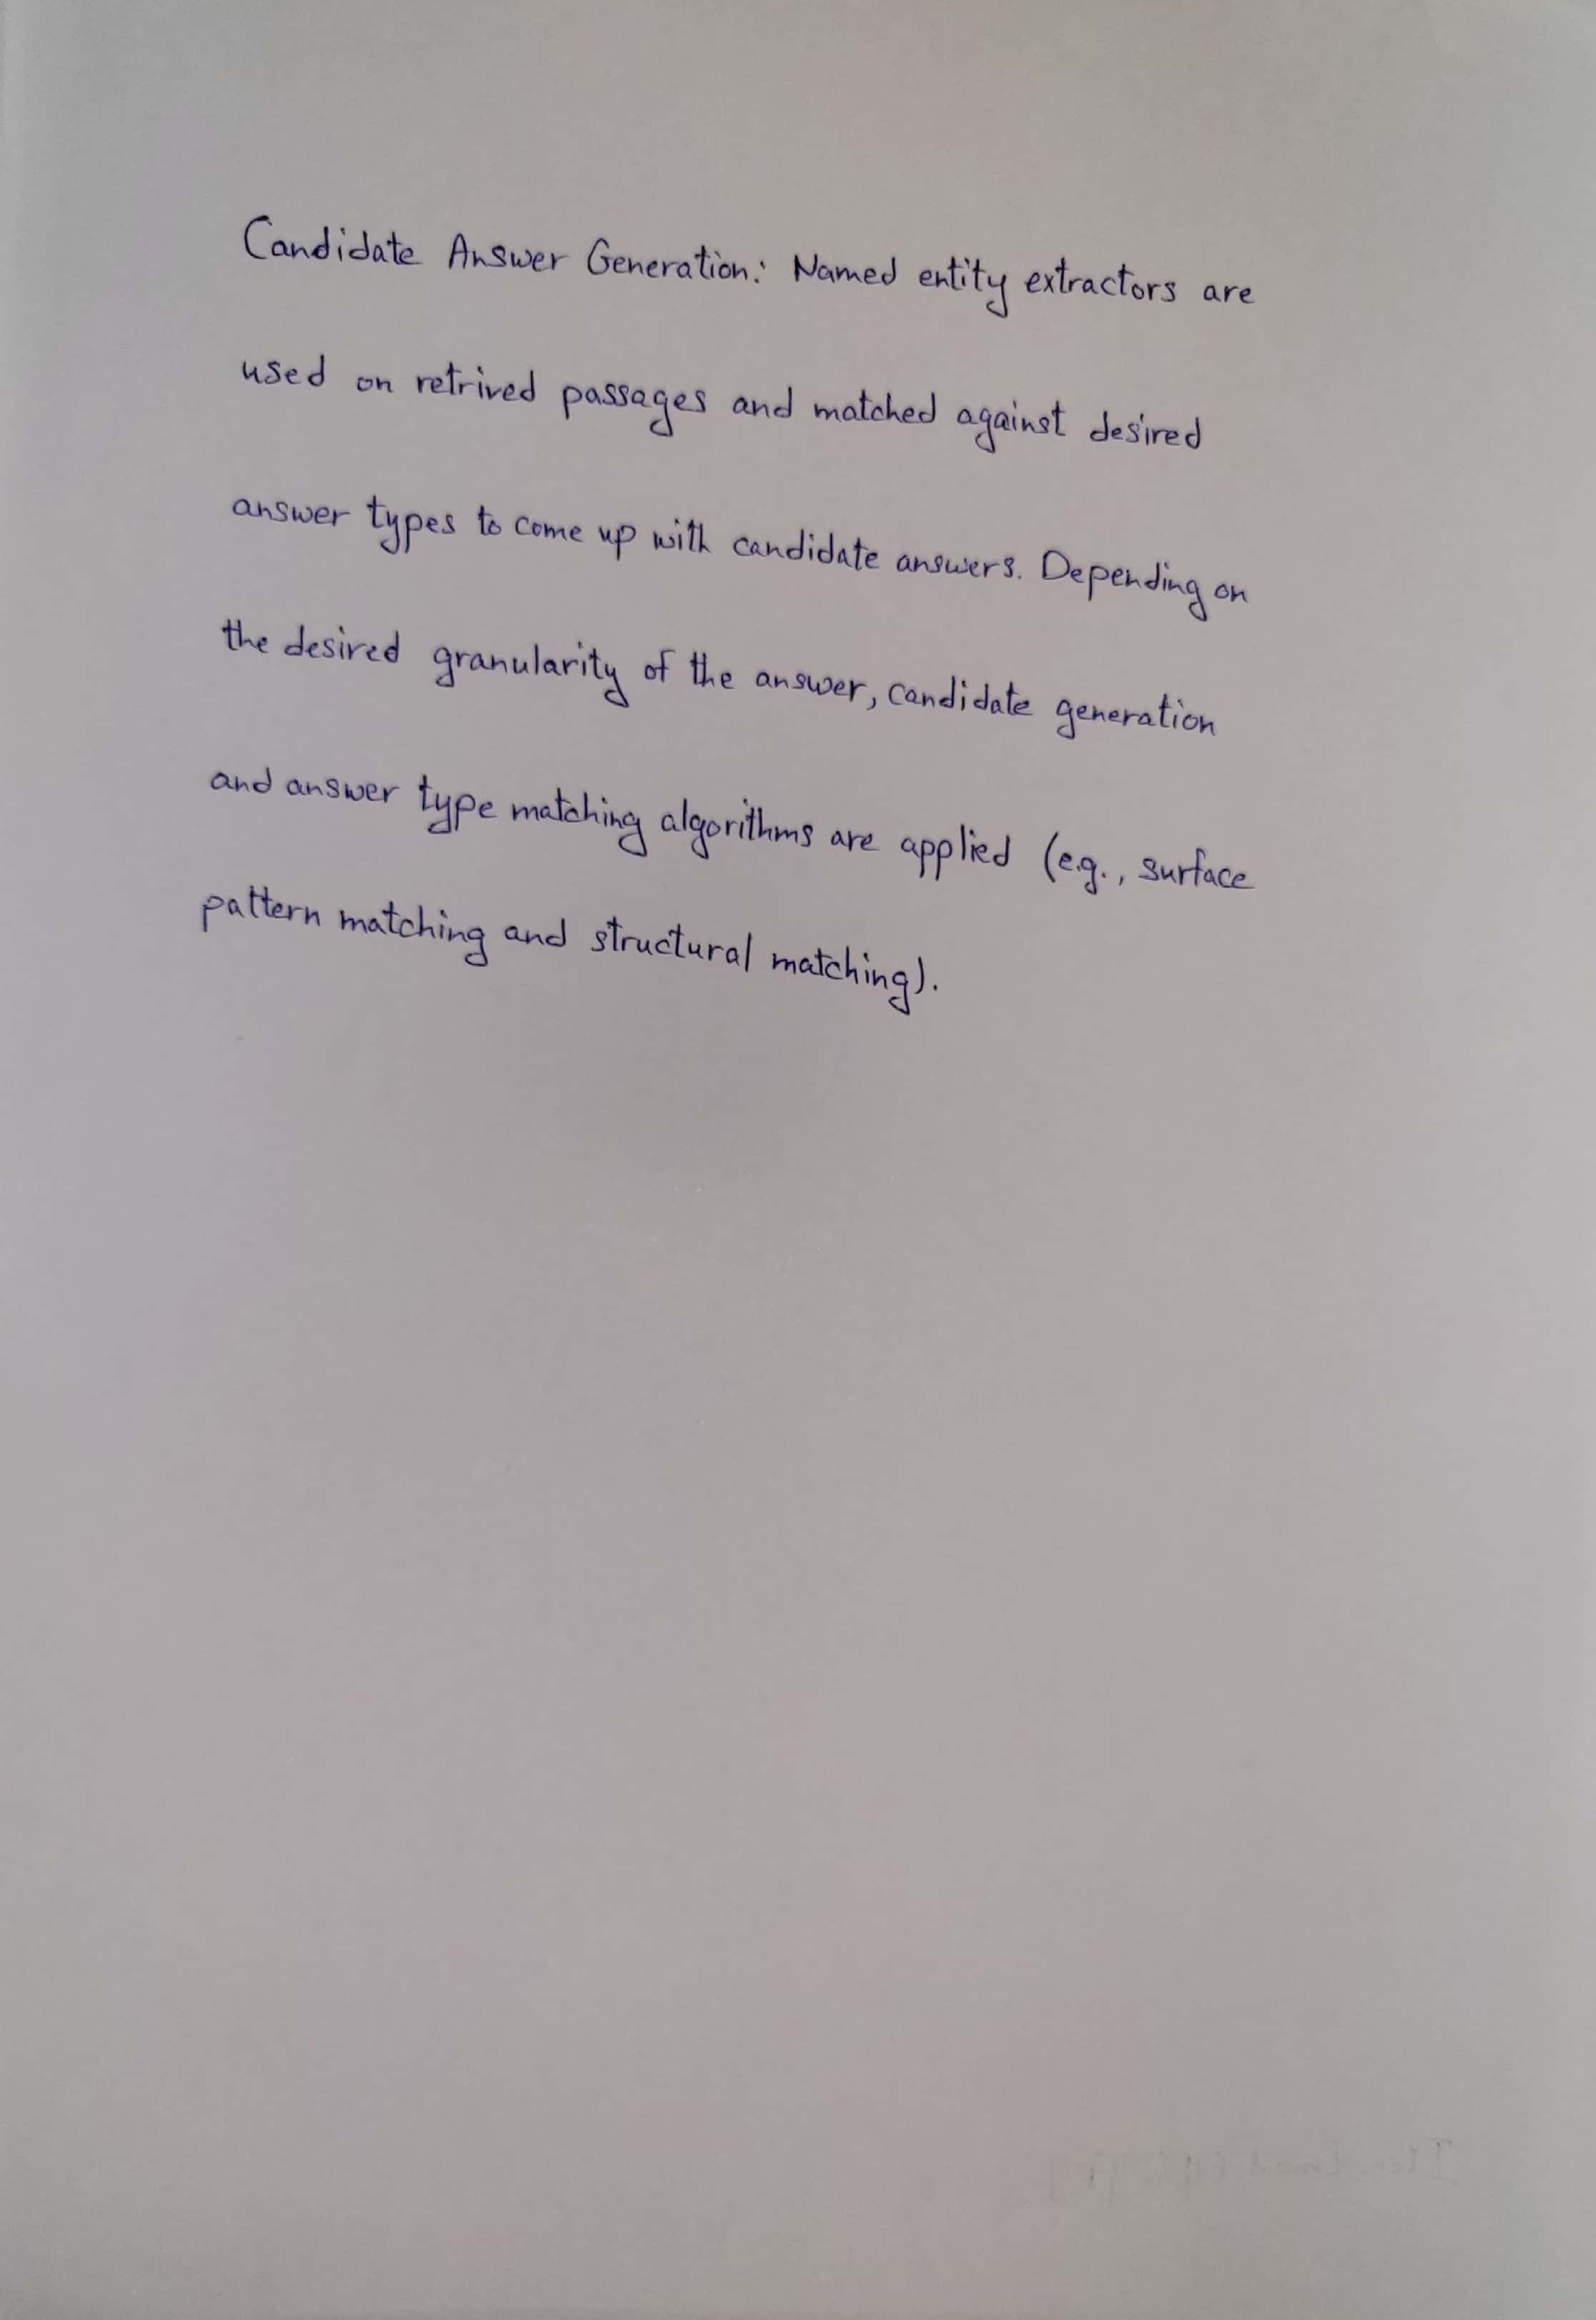 Candidate Answer Generation: Named entity extractors are
used on retrived passages and matched against desired
answer types to come up with candidate answers. Depending on
the desired granularity of the answer, candidate generation
and answer type matching algorithms are applied (e.g., surface
pattern matching and structural matching).